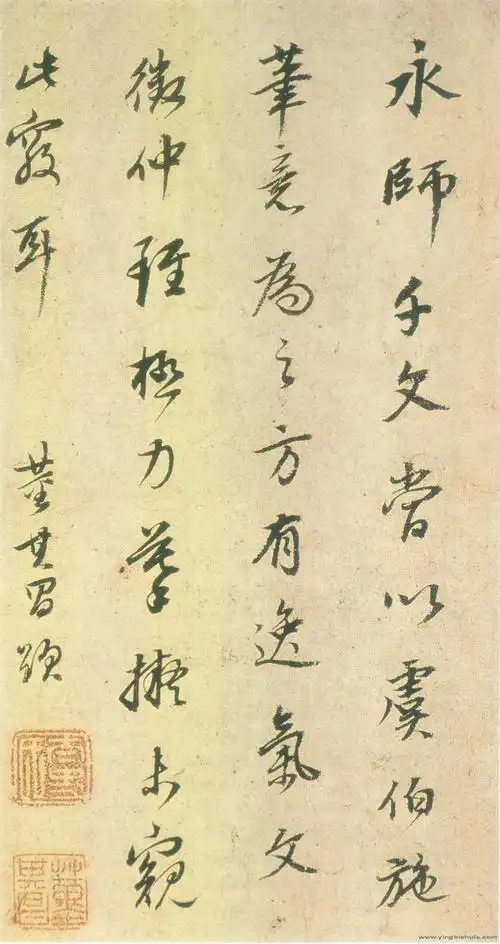 永師千文當以虞伯施
筆意為之方有逸氣文
徵仲雖極力摹擬未窺
此竅耳 董其昌題
董其昌
www.yingbishufa.com